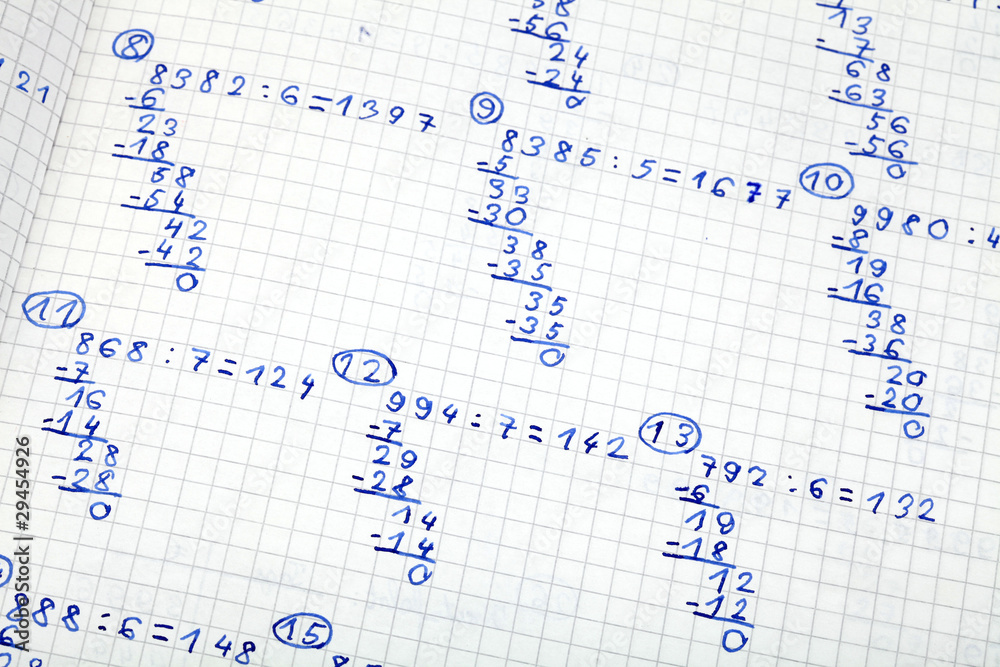 121
-56
24
-24
0
13
-7
68
-63
56
-56
0
8
8382:6=1397
-6
23
-18
58
-54
42
-42
0
9
8385:5=1677
-5
33
-30
38
-35
35
-35
0
10
9980:4
-8
19
-16
38
-36
20
-20
0
11
868:7=124
-7
16
-14
28
-28
0
12
994:7=142
-7
29
-28
14
-14
0
13
792:6=132
-6
19
-18
12
-12
0
888:6=148
15
Adobe Stock | #29454926